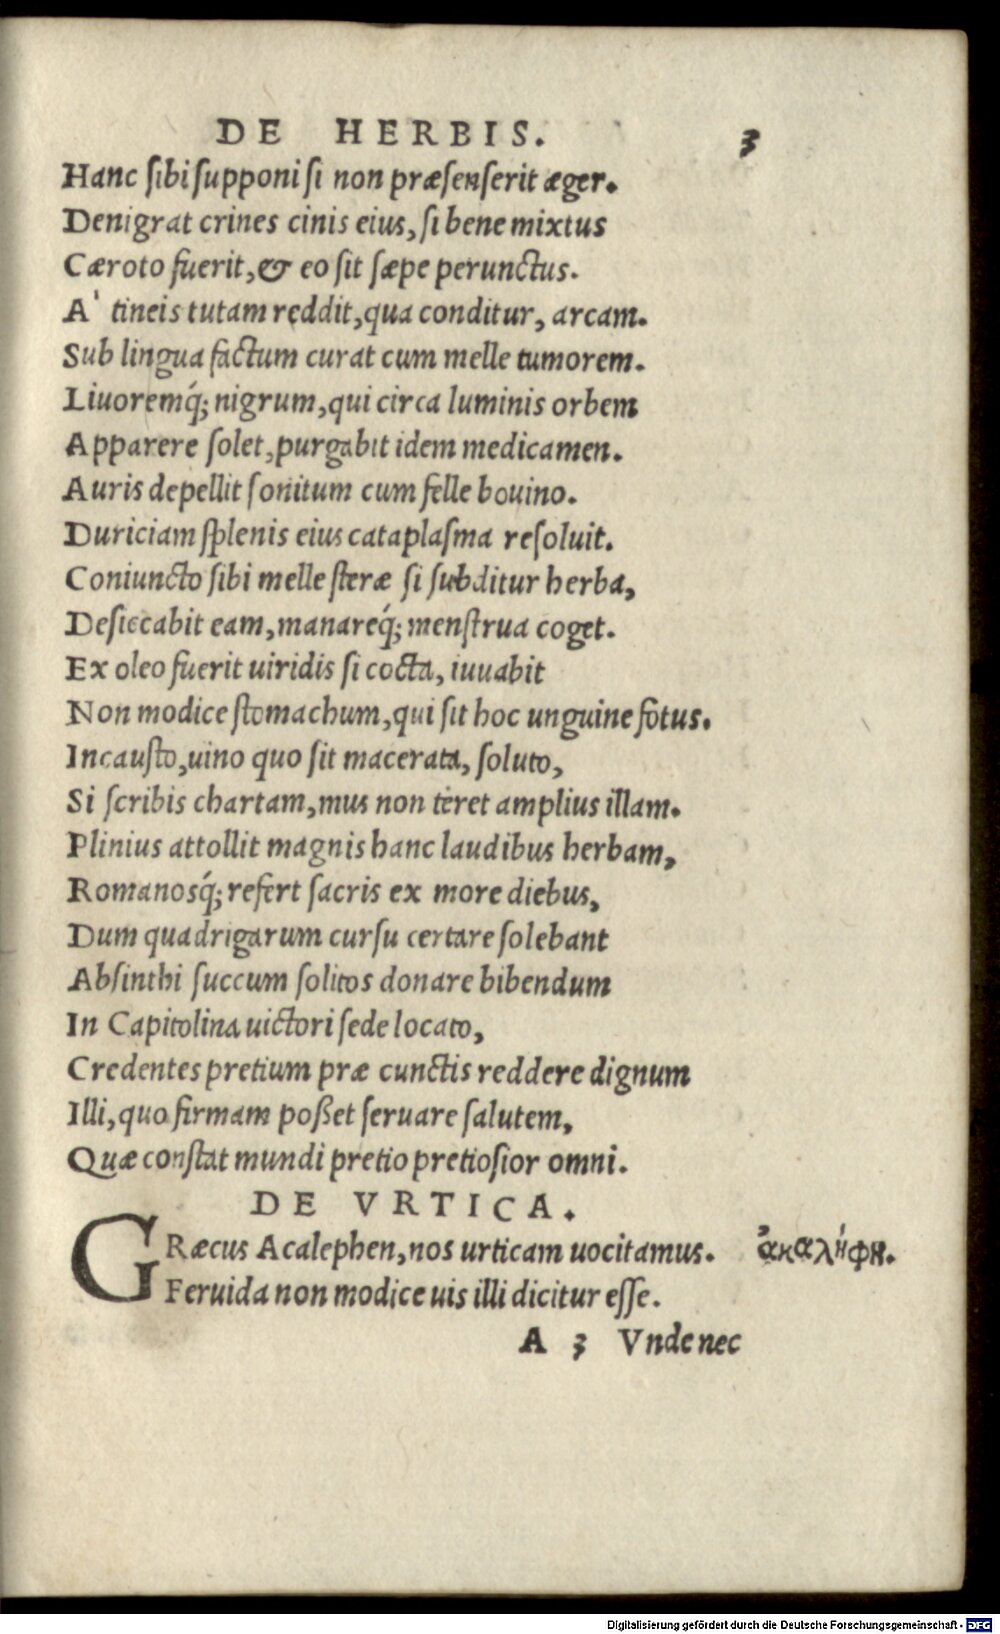 DE HERBIS. 3
Hanc ſibi ſupponi ſi non præſenſerit æger.
Denigrat crines cinis eius, ſi bene mixtus
Cæroto fuerit, & eo ſit ſæpe perunctus.
A' tineis tutam reddit, qua conditur, arcam.
Sub lingua factum curat cum melle tumorem.
Liuoremq́; nigrum, qui circa luminis orbem
Apparere ſolet, purgabit idem medicamen.
Auris depellit ſonitum cum felle bouino.
Duriciam ſplenis eius cataplaſma reſoluit.
Coniuncto ſibi melle ſteræ ſi ſubditur herba,
Deſiccabit eam, manareq́; menſtrua coget.
Ex oleo fuerit uiridis ſi cocta, iuuabit
Non modice ſtomachum, qui ſit hoc unguine fotus.
Incauſto, uino quo ſit macerata, ſoluto,
Si ſcribis chartam, mus non teret amplius illam.
Plinius attollit magnis hanc laudibus herbam,
Romanosq́; refert ſacris ex more diebus,
Dum quadrigarum curſu certare ſolebant
Abſinthi ſuccum ſolitos donare bibendum
In Capitolina uictori ſede locato,
Credentes pretium præ cunctis reddere dignum
Illi, quo firmam poßet ſeruare ſalutem,
Quæ conſtat mundi pretio pretioſior omni.
DE VRTICA.
GRæcus Acalephen, nos urticam uocitamus. ἀκαλήφη.
Feruida non modice uis illi dicitur eſſe.
A 3 Vnde nec
Digitalisierung gefördert durch die Deutsche Forschungsgemeinschaft - DFG